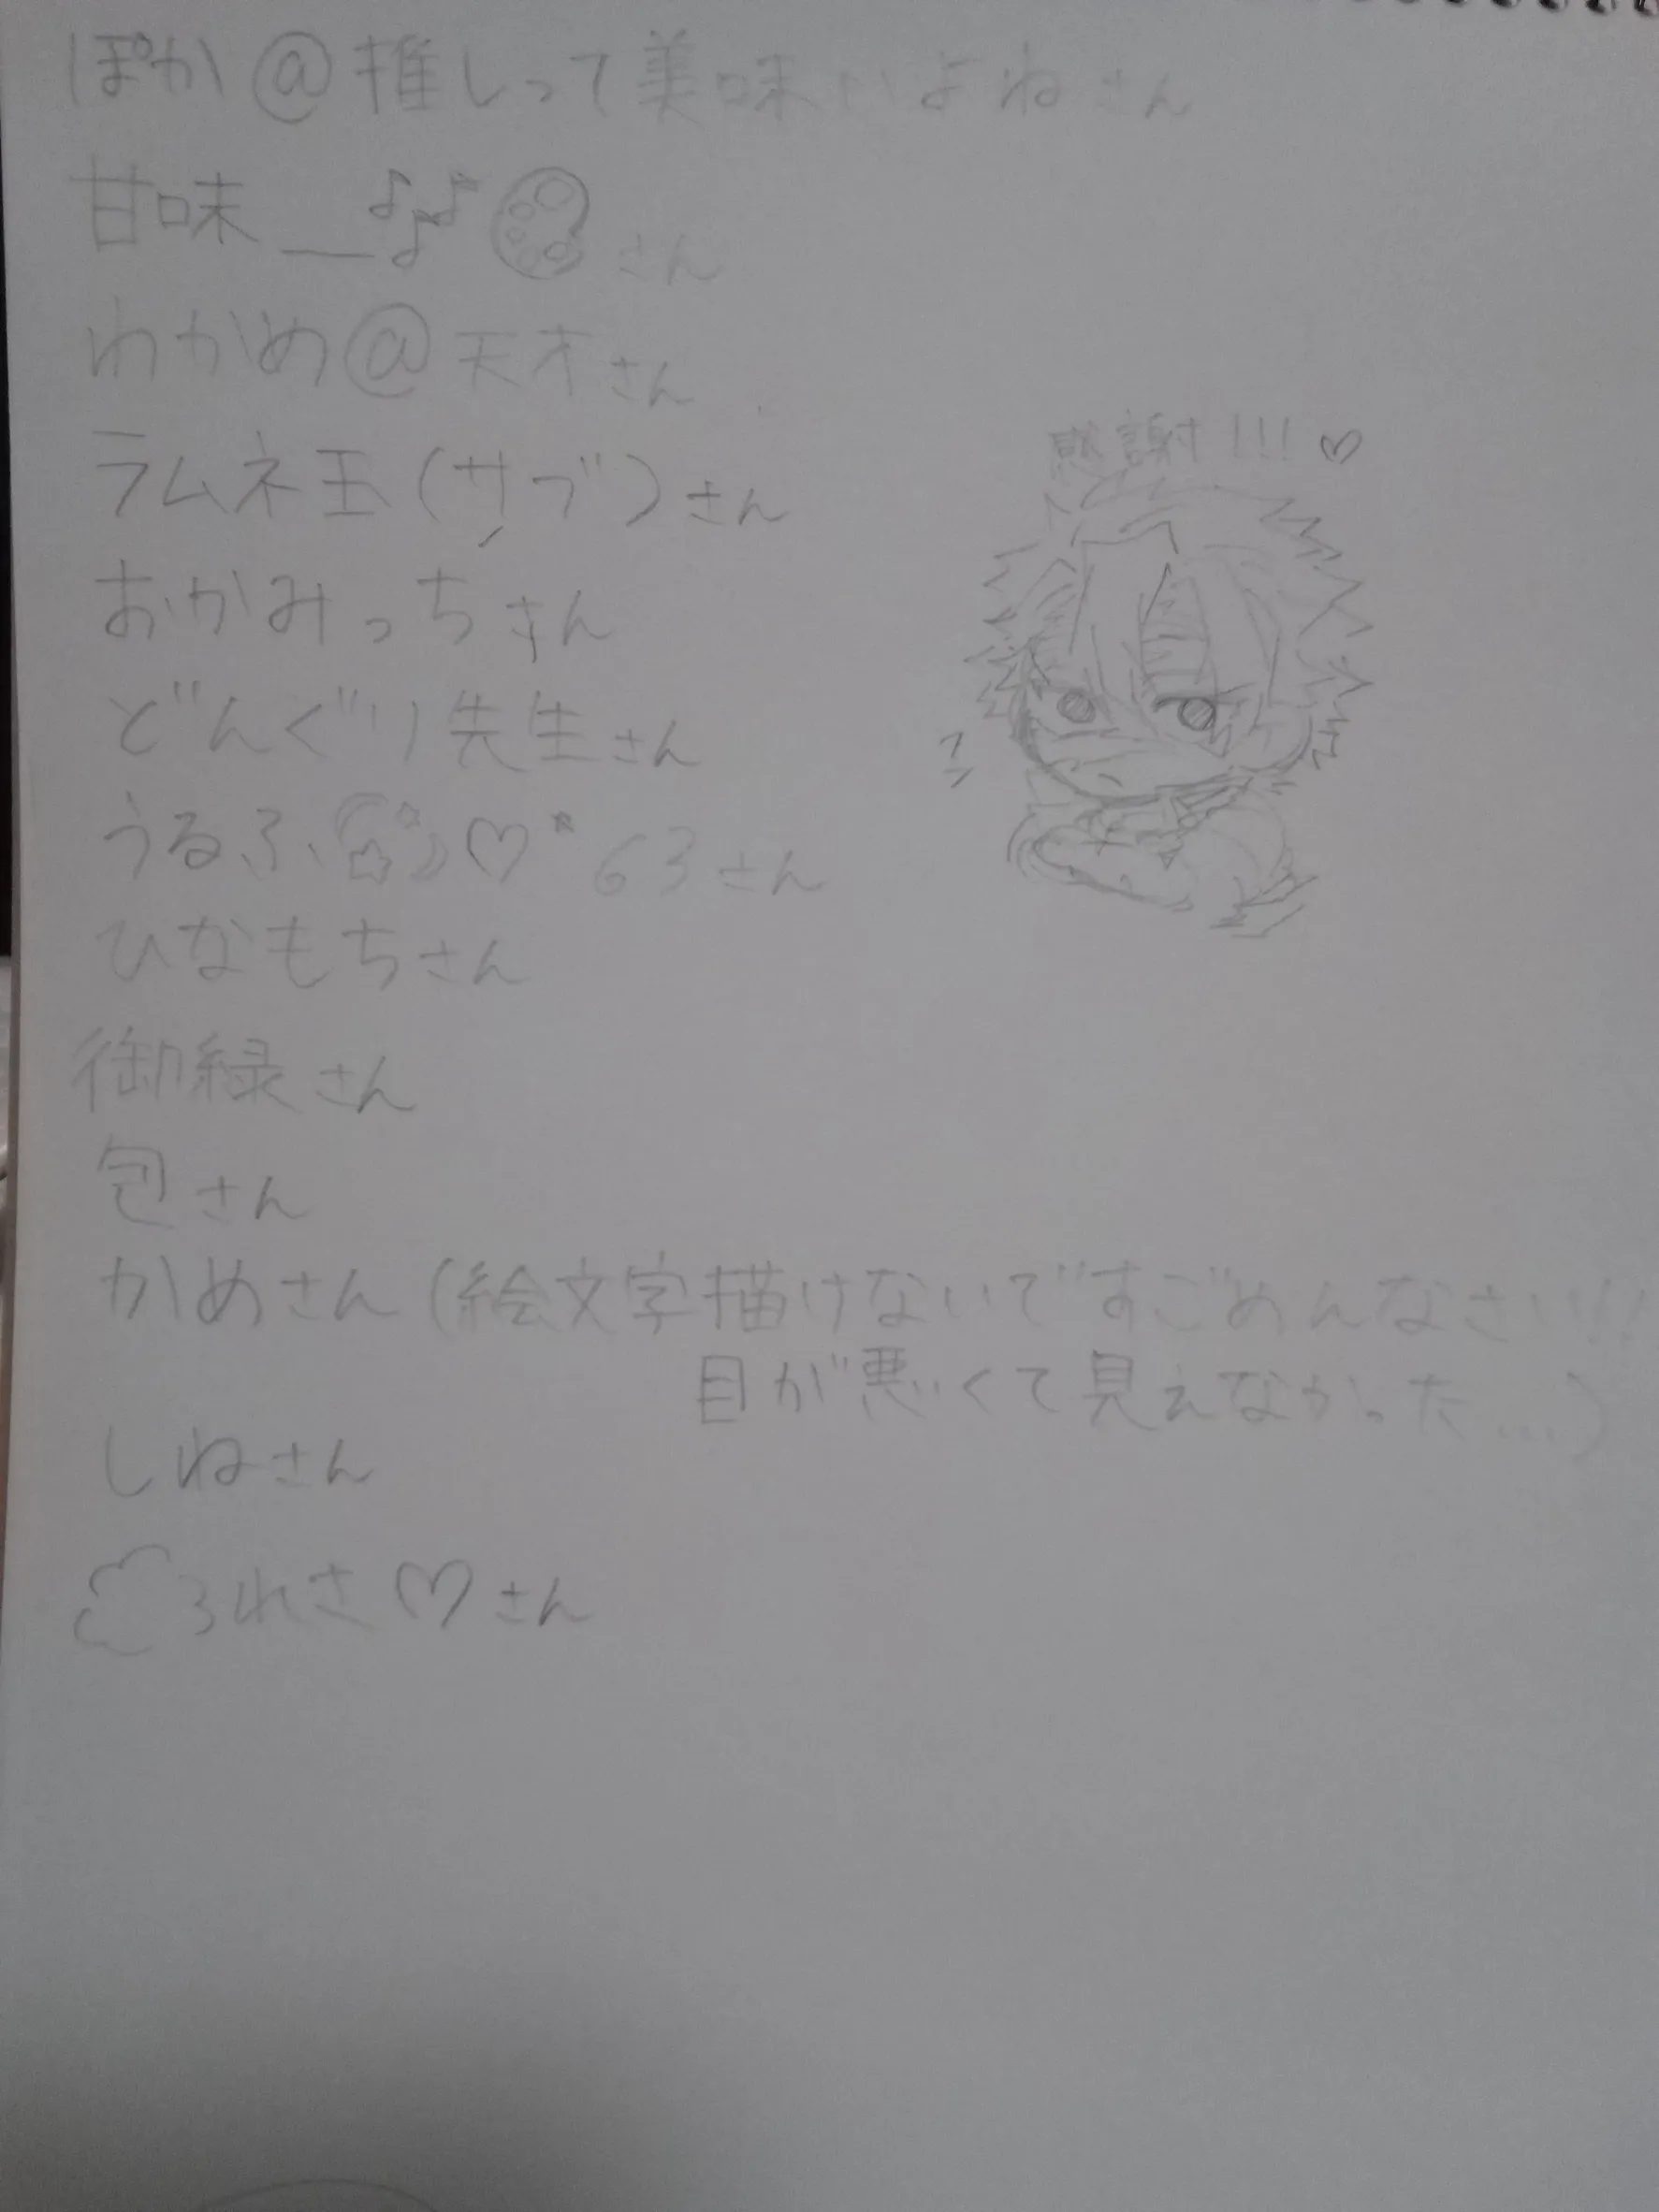 ぽか@推しって美味いよねさん
甘味＿♪♪♪🎨さん
わかめ@天才さん
ラムネ玉(サブ)さん
おかみっちさん
どんぐり先生さん
うるふ ♡*63さん
ひなもちさん
御緑さん
包さん
かめさん(絵文字描けないですごめんなさい!!
目が悪くて見えなかった...)
しねさん
ろれさ♡さん
感謝!!!♡